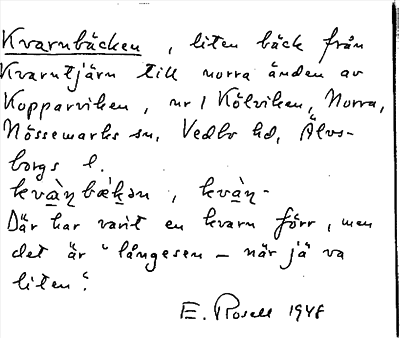 Kvarnbäcken, liten bäck från
Kvarntjärn till norra änden av
Kopparviken, nr 1 Kölviken, Norra,
Nössemarks sn, Vedbo hd, Älvs-
borgs l.
kvàɳbækən, kvàɳ-
Där har varit en kvarn förr, men
det är "långesen – när jä va
liten".
E. Rosell 1948